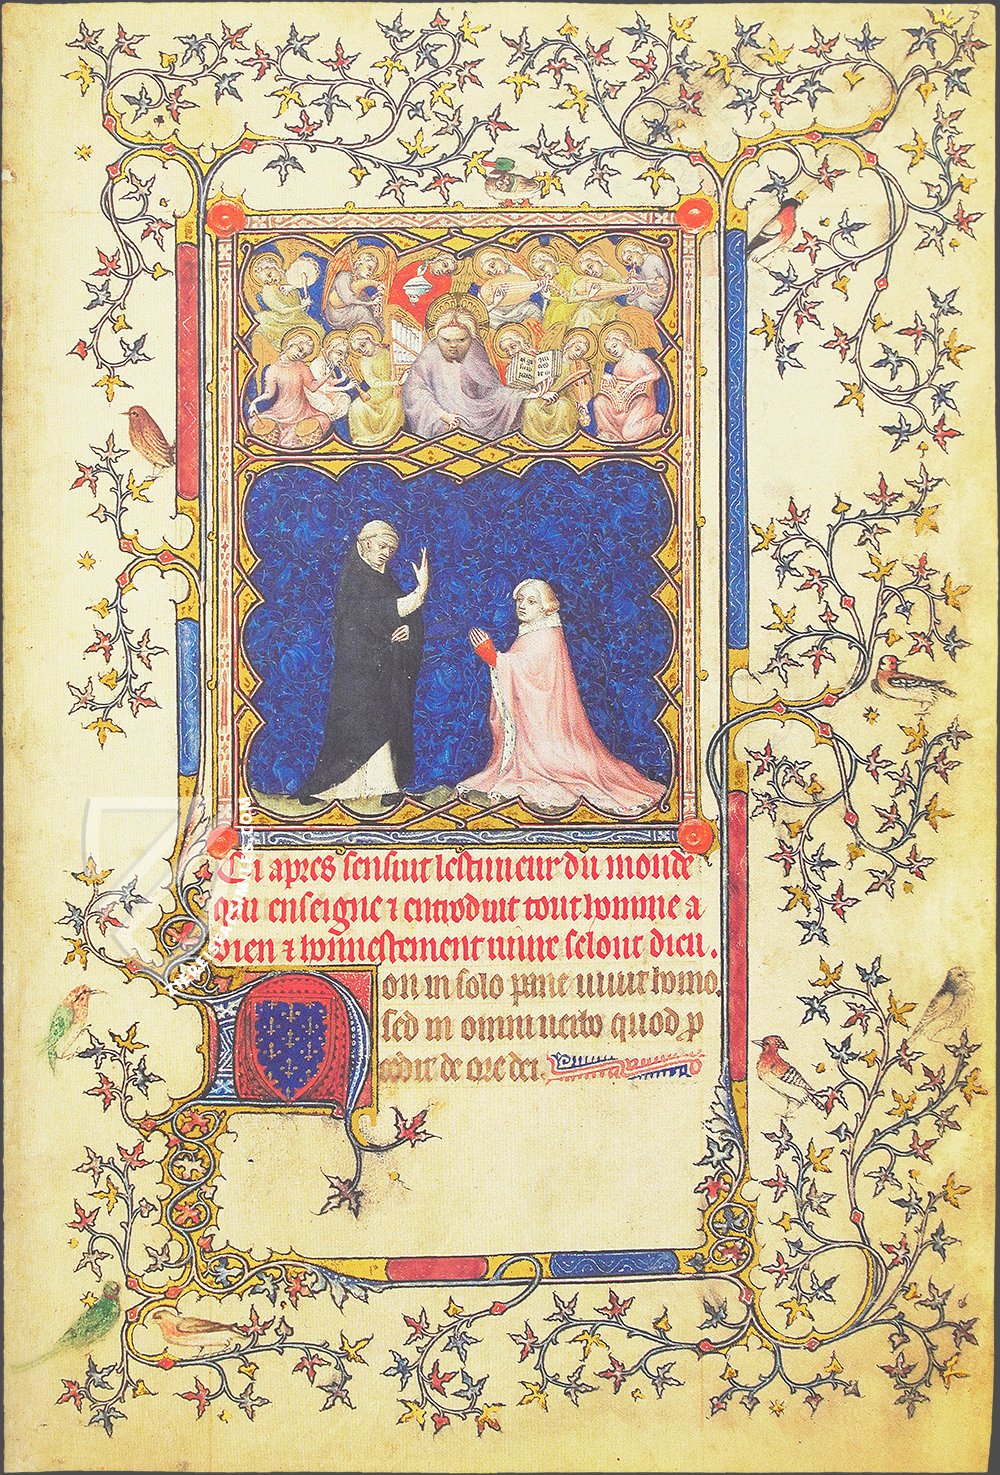 Ci apres sensuit lestimeur du monde
qui enseigne ⁊ introduit tout homme a
bien ⁊ honnestement viure selonc dieu.
Non in solo pane viuit homo.
sed in omni verbo quod p
cedit de ore dei.